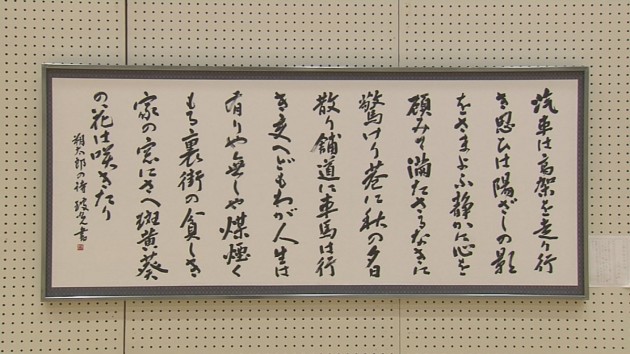 汽車は高架を走り行
き思ひは陽ざしの影
をさまよふ静かに心を
顧みて満たさるなきに
驚けり巷に秋の夕日
散り舗道に車馬は行
き交へどもわが人生は
有りや無しや煤煙く
もる裏街の貧しき
家の窓にさへ斑黄葵
の花は咲きたり
朔太郎の詩 書